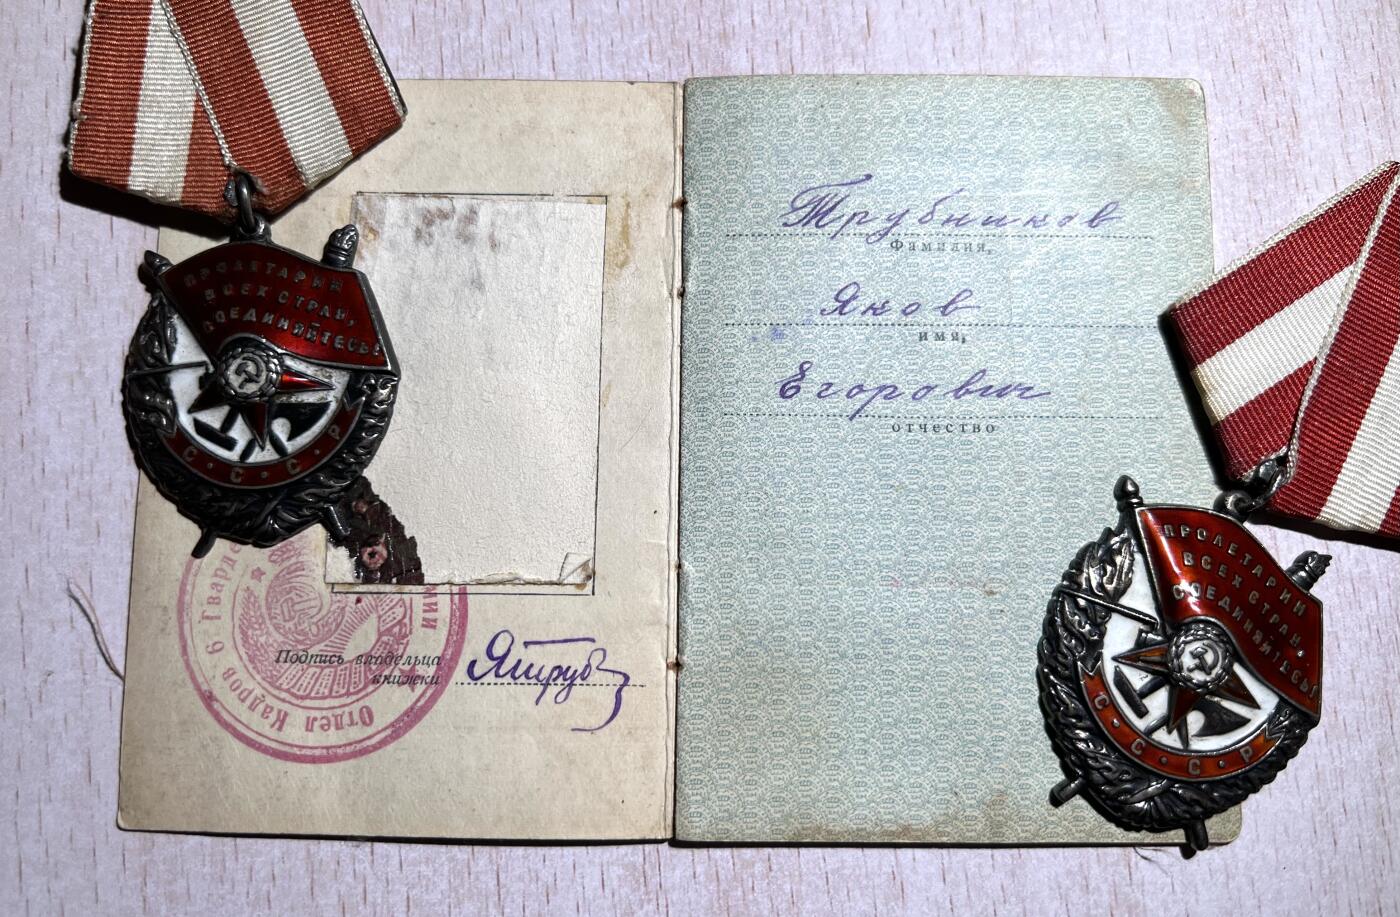 ПРОЛЕТАРИИ
ВСЕХ СТРАН,
СОЕДИНЯЙТЕСЬ!
С·С·С·Р
Отдел Кадров 6 Гвард
МИИ
Подпись владельца
книжки
ЯТруб
Трубников
Фамилия,
Яков
имя,
Егорович
отчество
ПРОЛЕТАРИИ
ВСЕХ СТРАН,
СОЕДИНЯЙТЕСЬ!
С·С·С·Р